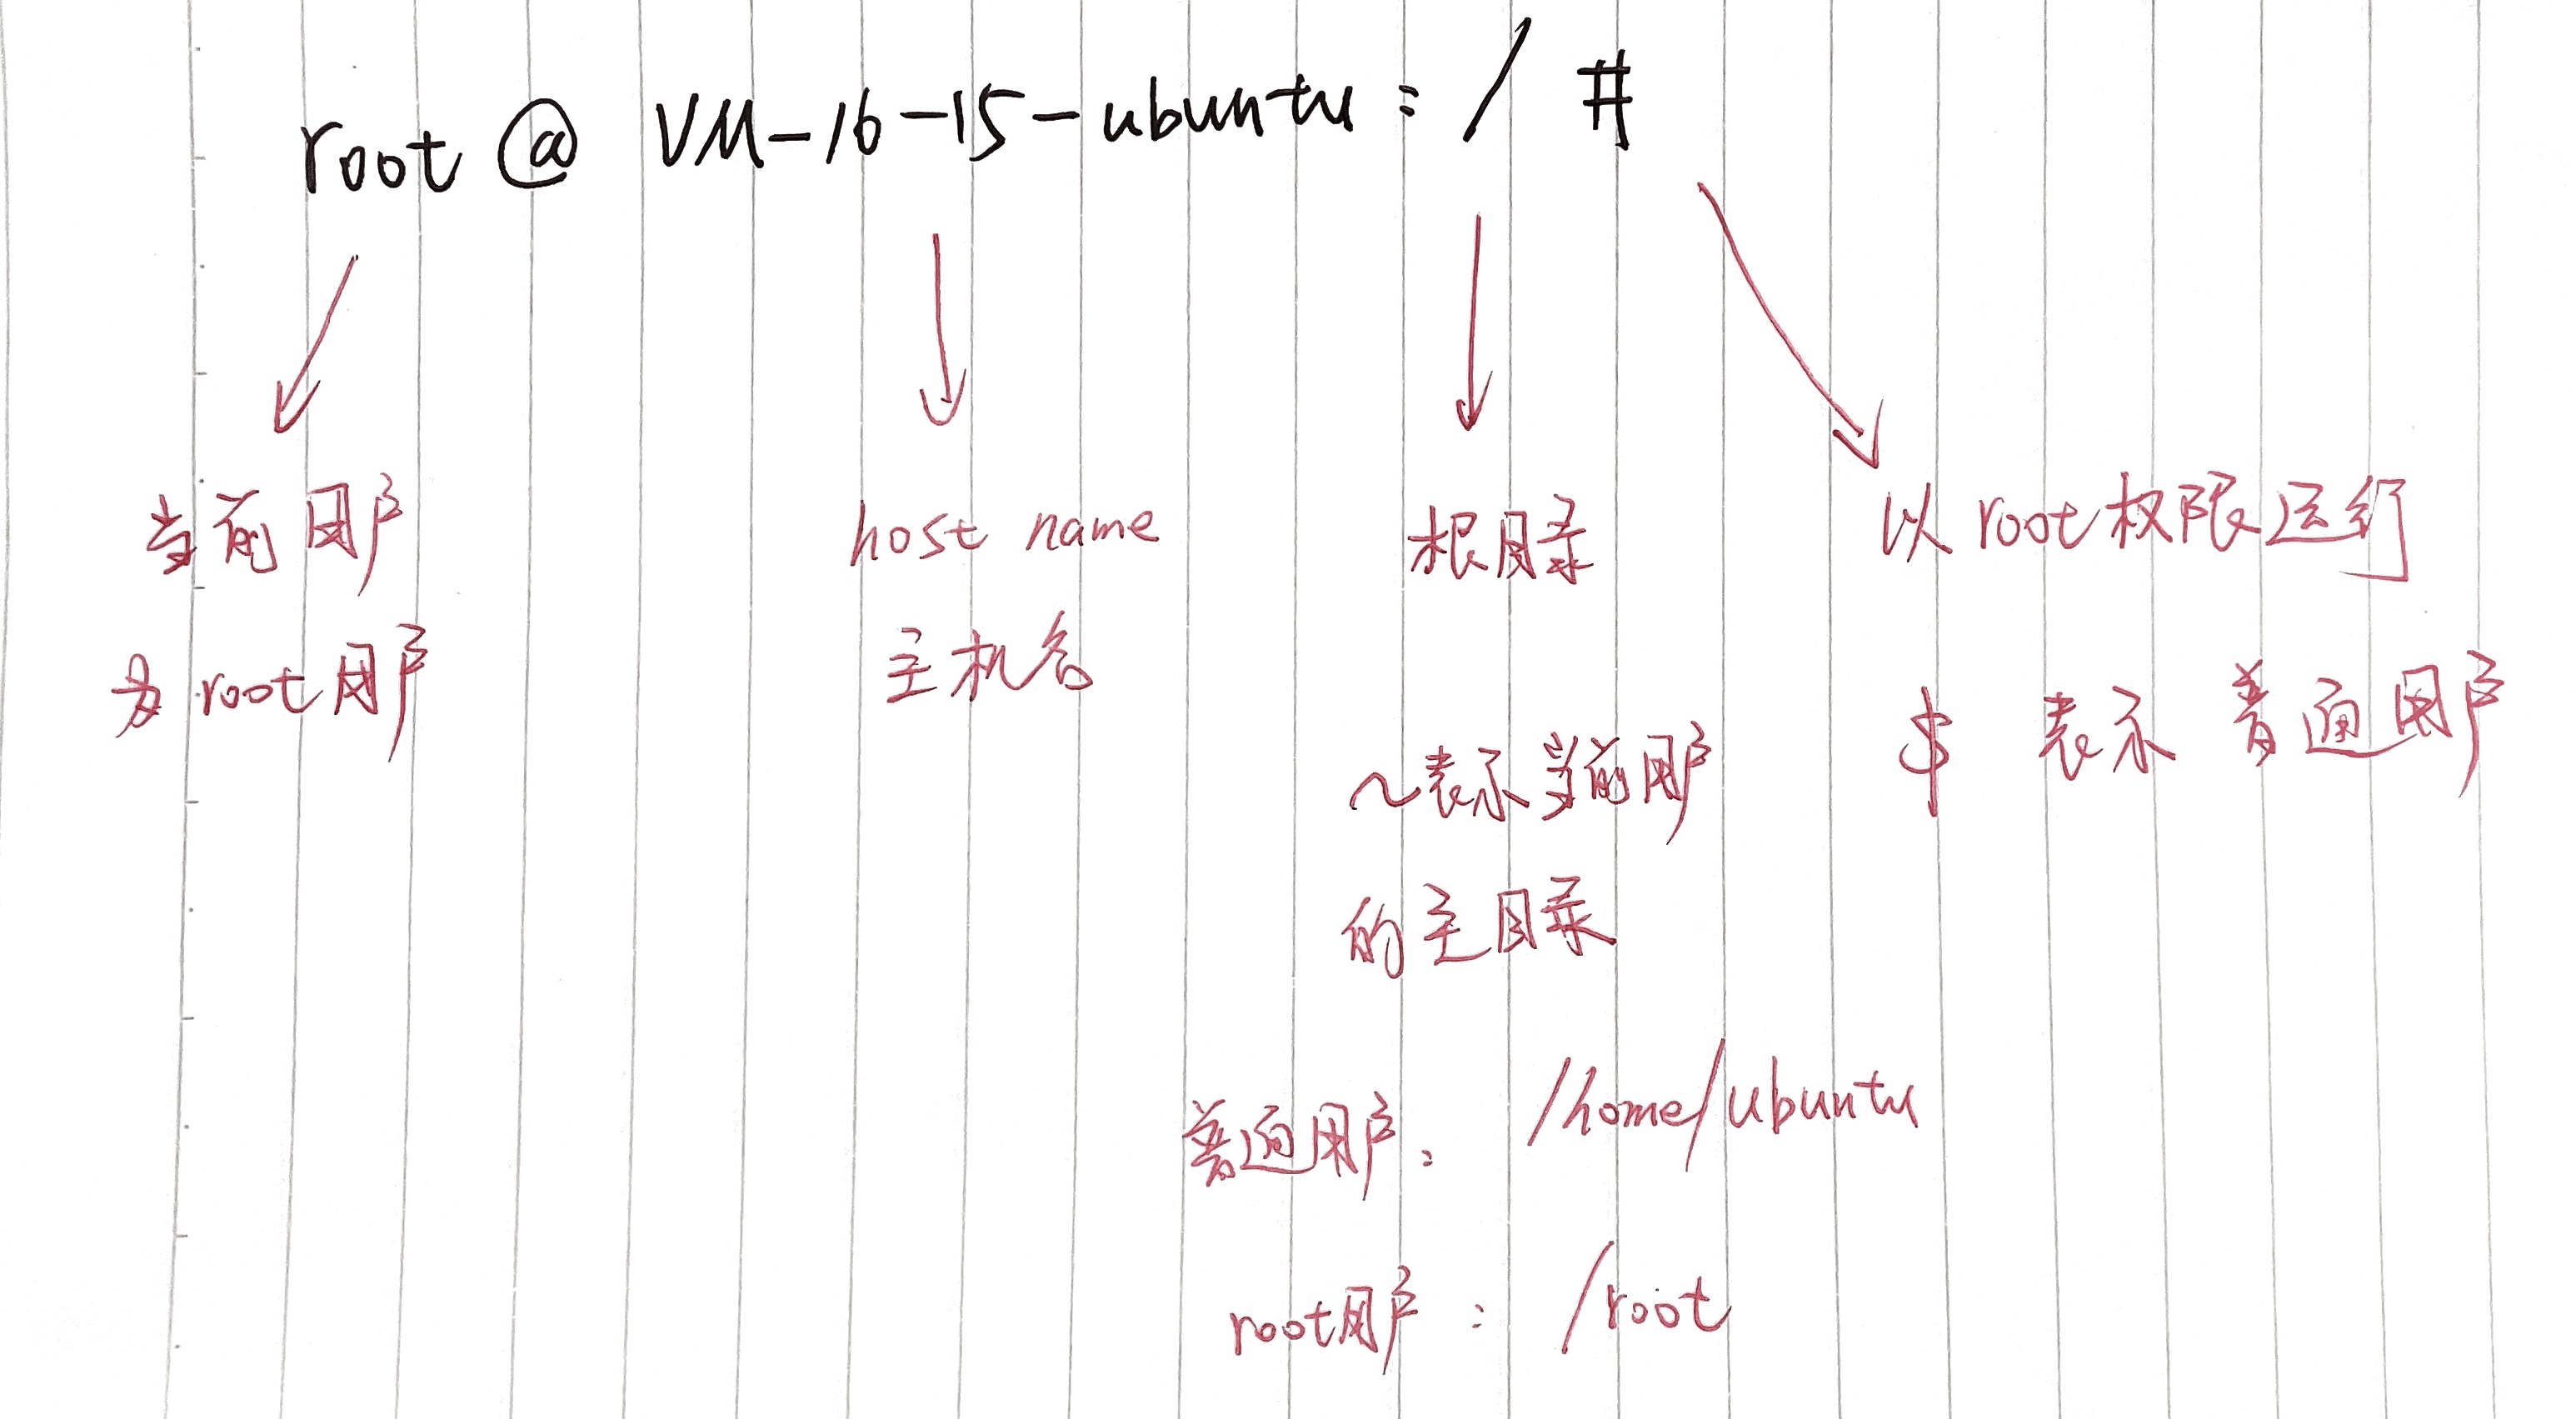 root @ VM-16-15-ubuntu : / #
当前用户
为 root 用户
host name
主机名
根目录
~表示当前用户
的主目录
普通用户 : /home/ubuntu
root用户 : /root
以 root 权限运行
$ 表示 普通用户